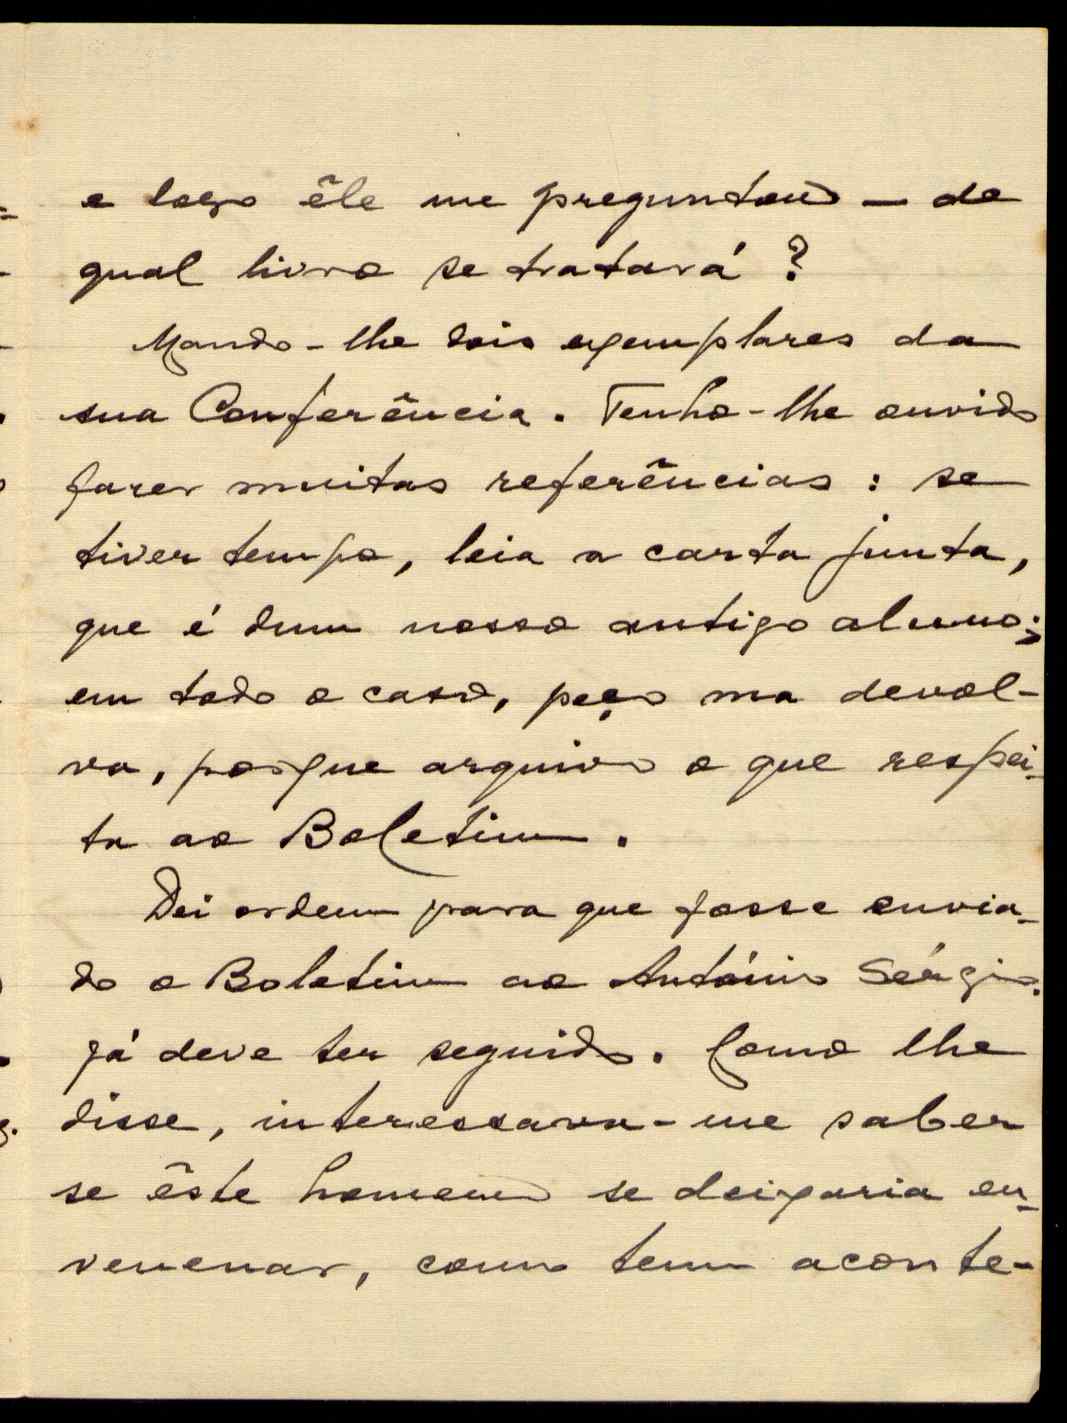 e logo êle me preguntou — de
qual livro se tratará?
Mando-lhe dois exemplares da
sua Conferência. Tenho-lhe ouvido
fazer muitas referências: se
tiver tempo, leia a carta junta,
que é dum nosso antigo aluno;
em todo o caso, peço ma devol-
va, porque arquivo o que respei-
ta ao Boletim.
Dei ordem para que fosse envia-
do o Boletim ao António Sérgio.
Já deve ter seguido. Como lhe
disse, interessava-me saber
se êste homem se deixaria en-
venenar, como tem aconte-